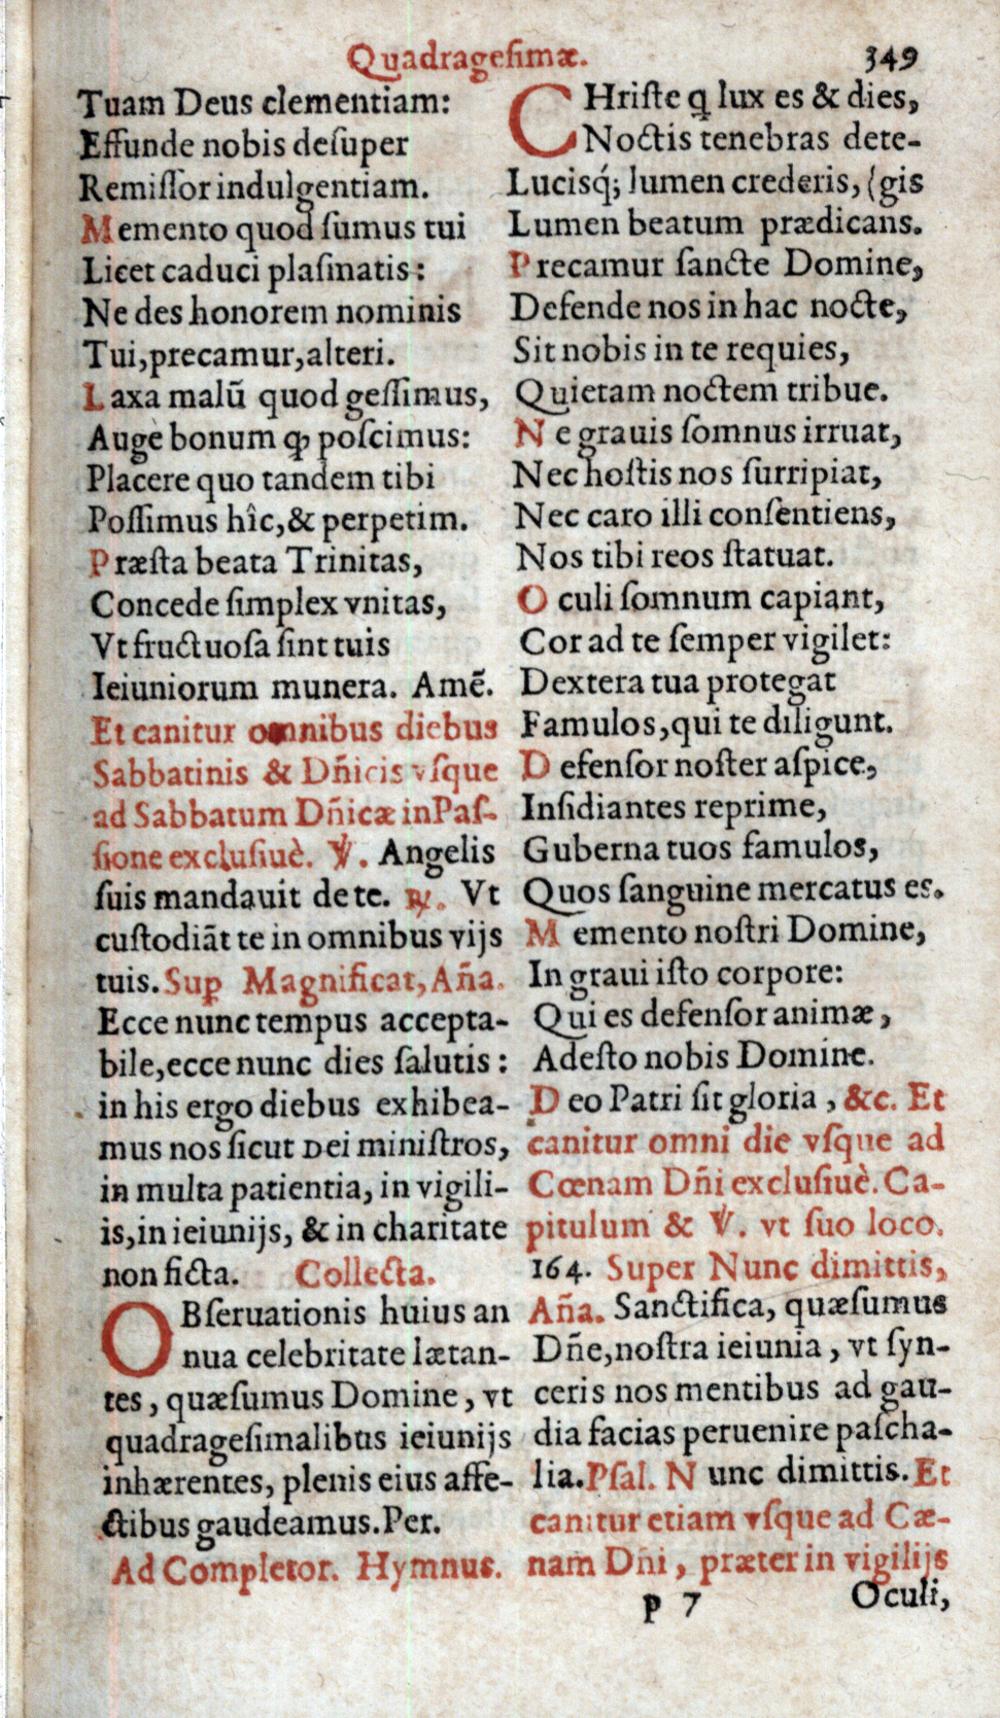 Quadragesimæ. 349
Tuam Deus clementiam:
Effunde nobis deſuper
Remiſſor indulgentiam.
Memento quod ſumus tui
Licet caduci plaſmatis:
Ne des honorem nominis
Tui,precamur,alteri.
Laxa malũ quod geſſimus,
Auge bonum ꝙ poſcimus:
Placere quo tandem tibi
Poſſimus hîc,& perpetim.
Præſta beata Trinitas,
Concede ſimplex vnitas,
Vt fructuoſa ſint tuis
Ieiuniorum munera. Amẽ.
Et canitur omnibus diebus
Sabbatinis & Dñicis vſque
ad Sabbatum Dñicæ in Paſ-
ſione excluſiuè. ℣. Angelis
ſuis mandauit de te. ℟. Vt
cuſtodiãt te in omnibus vijs
tuis. Suꝑ Magnificat, Aña.
Ecce nunc tempus accepta-
bile,ecce nunc dies ſalutis:
in his ergo diebus exhibea-
mus nos ſicut Dei miniſtros,
in multa patientia, in vigili-
is,in ieiunijs, & in charitate
non ficta. Collecta.
OBſeruationis huius an
nua celebritate lætan-
tes, quæſumus Domine, vt
quadrageſimalibus ieiunijs
inhærentes, plenis eius affe-
ctibus gaudeamus.Per.
Ad Completor. Hymnus.
CHriſte q̃ lux es & dies,
Noctis tenebras dete-
Lucisq́; lumen crederis, (gis
Lumen beatum prædicans.
Precamur ſancte Domine,
Defende nos in hac nocte,
Sit nobis in te requies,
Quietam noctem tribue.
Ne grauis ſomnus irruat,
Nec hoſtis nos ſurripiat,
Nec caro illi conſentiens,
Nos tibi reos ſtatuat.
Oculi ſomnum capiant,
Cor ad te ſemper vigilet:
Dextera tua protegat
Famulos,qui te diligunt.
Defenſor noſter aſpice,
Inſidiantes reprime,
Guberna tuos famulos,
Quos ſanguine mercatus es.
Memento noſtri Domine,
In graui iſto corpore:
Qui es defenſor animæ,
Adeſto nobis Domine.
Deo Patri ſit gloria, &c. Et
canitur omni die vſque ad
Cœnam Dñi excluſiuè. Ca-
pitulum & ℣. vt ſuo loco.
164. Super Nunc dimittis,
Aña. Sanctifica, quæſumus
Dñe,noſtra ieiunia, vt ſyn-
ceris nos mentibus ad gau-
dia facias peruenire paſcha-
lia.Pſal. Nunc dimittis. Et
canitur etiam vſque ad Cæ-
nam Dñi, præter in vigilijs
P 7 Oculi,